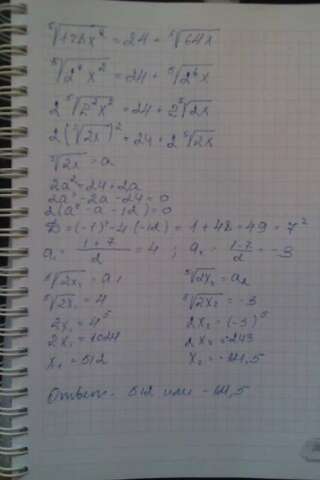 ⁵√128x² = 24 + ⁵√64x
⁵√2⁷x² = 24 + ⁵√2⁶x
2 ⁵√2²x² = 24 + 2 ⁵√2x
2(⁵√2x)² = 24 + 2 ⁵√2x
⁵√2x = a
2a² = 24 + 2a
2a² - 2a - 24 = 0
2(a² - a - 12) = 0
D = (-1)² - 4(-12) = 1 + 48 = 49 = 7²
a₁ = (1+7)/2 = 4 ; a₂ = (1-7)/2 = -3
⁵√2x₁ = a₁ ⁵√2x₂ = a₂
⁵√2x₁ = 4 ⁵√2x₂ = -3
2x₁ = 4⁵ 2x₂ = (-3)⁵
2x₁ = 1024 2x₂ = -243
x₁ = 512 x₂ = -121,5
Ответ: 512 или -121,5